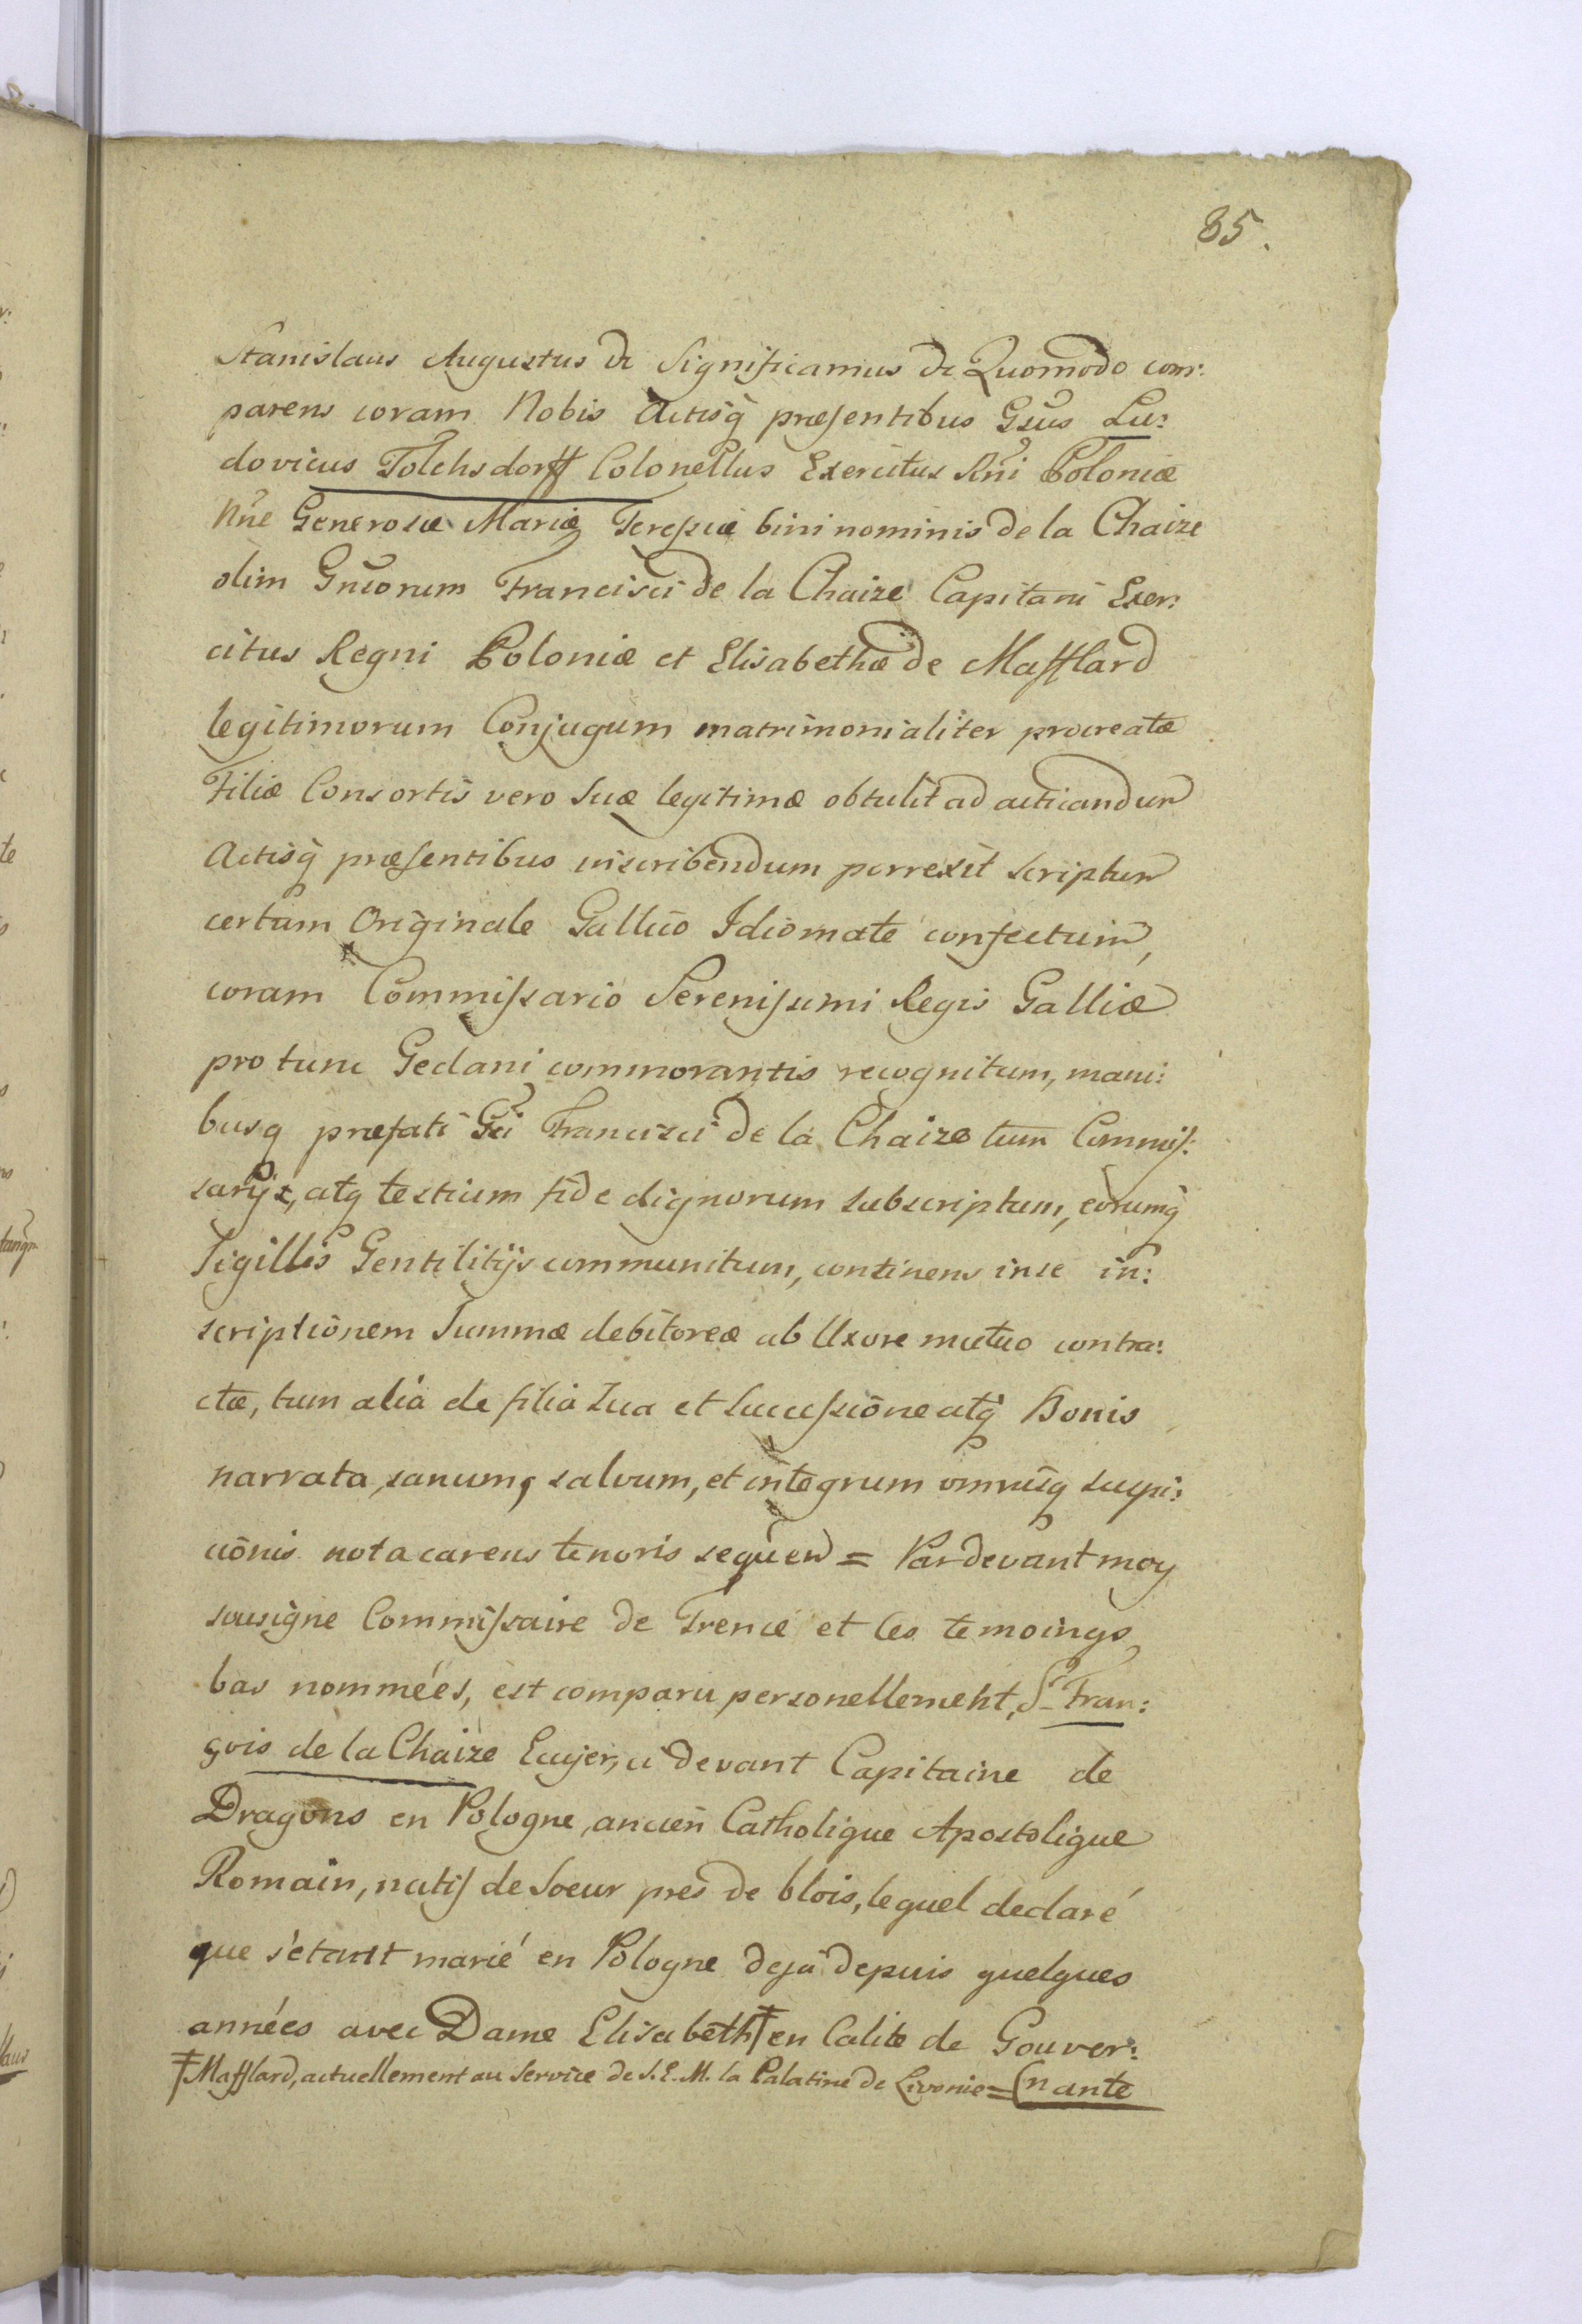 85.
Stanislaus Augustus &c Significamus &c Quomodo com:
parens coram Nobis Actisq̃ præsentibus Gsũs Lu:
dovicus Tolchsdorff Colonellus Exercitus Rñi Poloniæ
Nñe Generosæ Mariæ Teresiæ bini nominis de la Chaize
olim Gnẽorum Francisci de la Chaize Capitani Exer:
citus Regni Poloniæ et Elisabethæ de Mafflard
legitimorum Conjugum matrimonialiter procreatæ
Filiæ Consortis vero Suæ legitimæ obtulit ad acticandum
Actisq̃ præsentibus inscribendum porrexit scriptum
certum Originale Gallico Idiomate confectum,
coram Commissario Serenissimi Regis Galliæ
pro tunc Gedani commorantis recognitum, mani:
busq præfati Gĩi Francisci de la Chaize tum Commis:
sarij, atq testium fide dignorum subscriptum, eorumq̃
Sigillis Gentilitijs communitum, continens in se in:
scriptionem Summæ debitoreæ ab Uxore mutuo contra:
ctæ, tum alia de filia Sua et Successione atq̃ Bonis
narrata, sanum, salvum, et integrum omniq suspi:
cionis nota carens tenoris sequen = Pardevant moy
sousigne Commissaire de Frence et les temoings
bas nommées, est comparu personellement, Sr Fran:
çois de la Chaize Ecuyer, ci devant Capitaine de
Dragons en Pologne, ancien Catholique Apostolique
Romain, natif de Soeur pres de blois, lequel declaré
que s'etant marié en Pologne deja depuis quelques
années avec Dame Elisabeth ‡ en Calite de Gouver:
‡ Mafflard, actuellement au Service de S. E. M. la Palatine de Livonie = nante